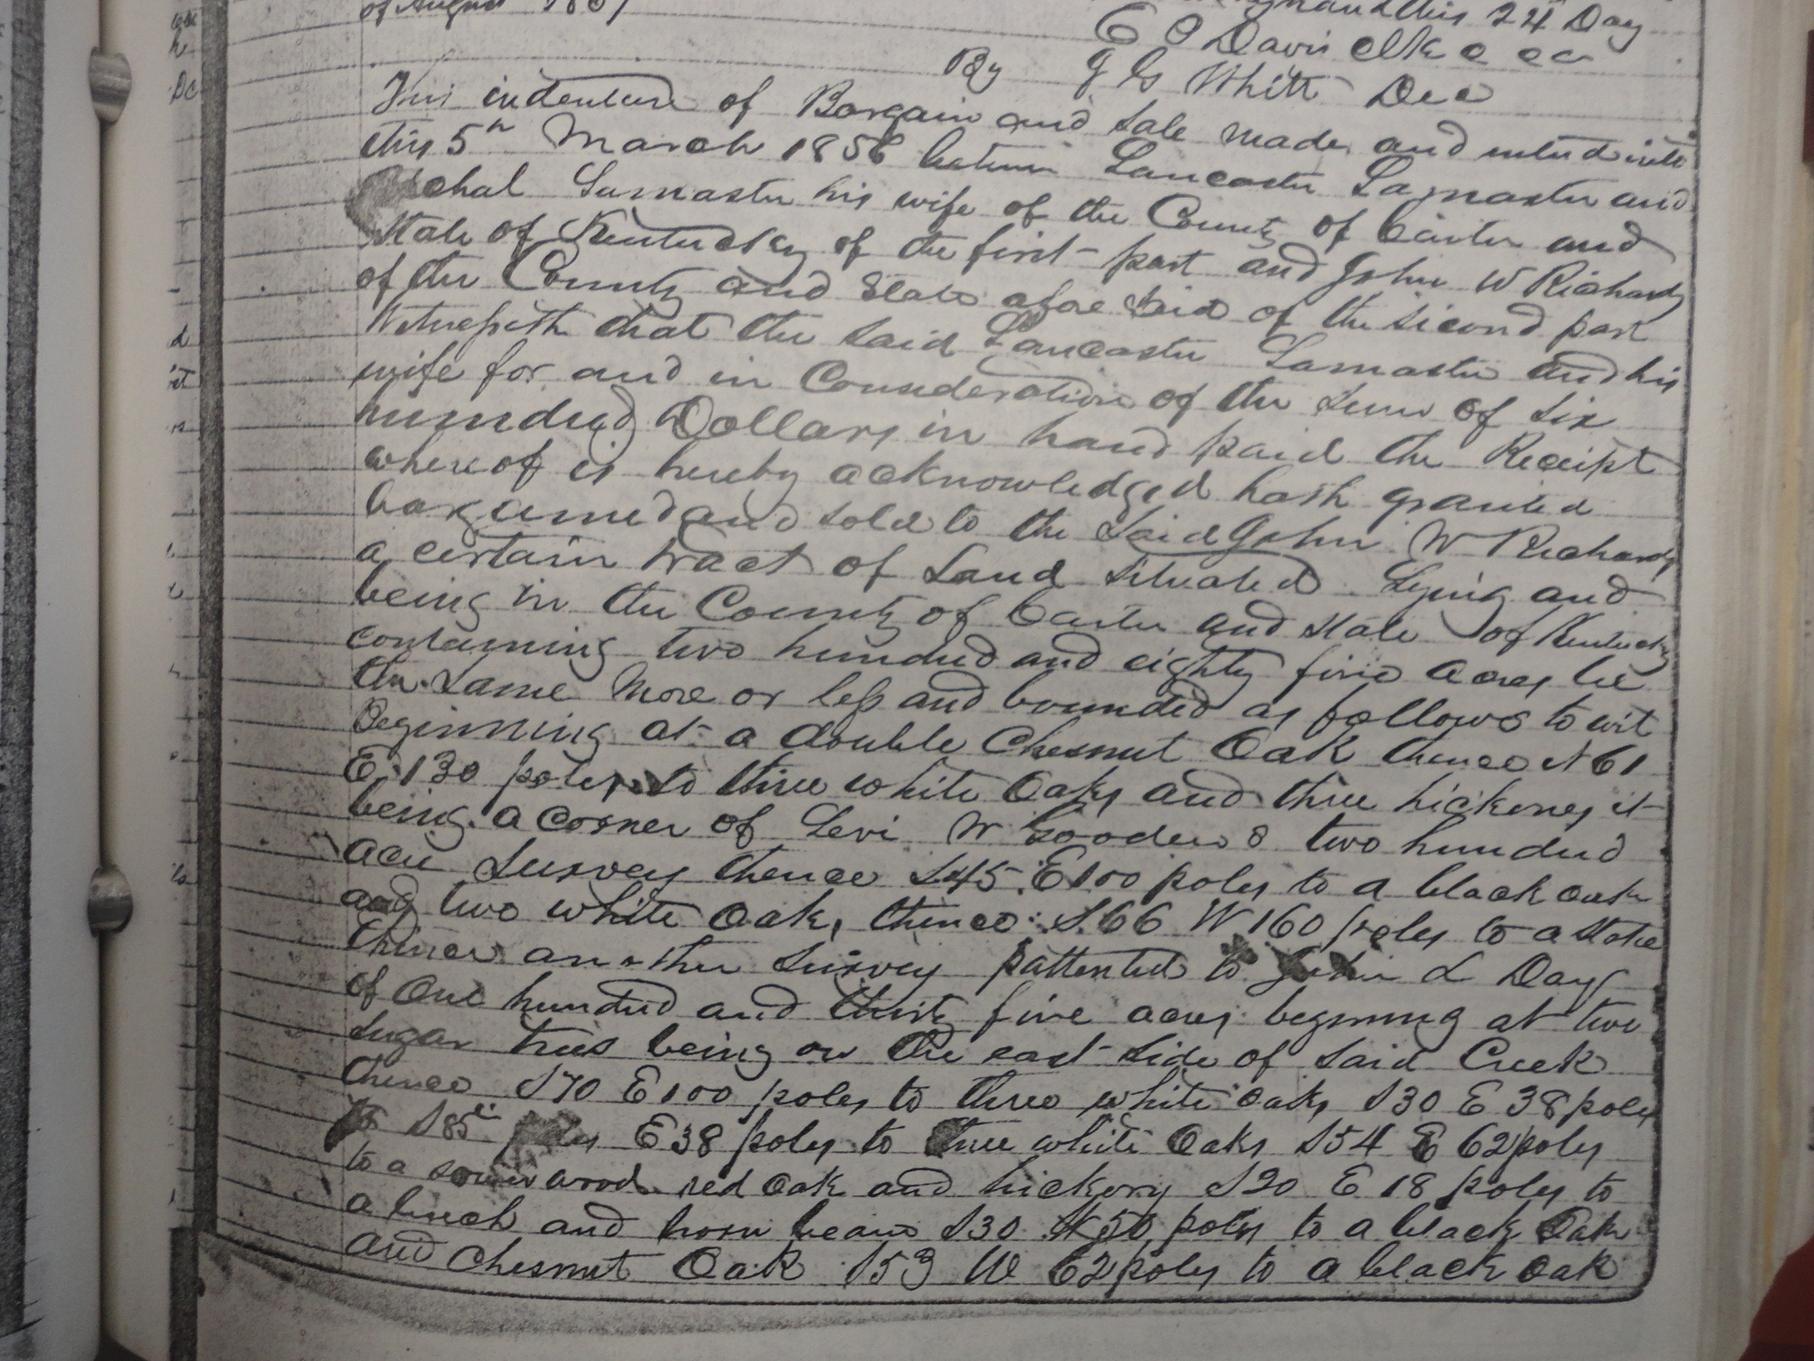 of August 186
hand this 24 Day
E O Davis Clk C C C
By J G Whitt D C
This indenture of Bargain and Sale made and entered into
this 5th March 1856 between Lancaster Lamaster and
chal Lamaster his wife of the County of Carter and
State of Kentucky of the first part and John W Richards
of the County and State afore Said of the second part
Witnesseth that the said Lancaster Lamaster and his
wife for and in Consideration of the sum of six
hundred Dollars in hand paid the Receipt
where of is hereby acknowledged hath granted
bargained and sold to the Said John W Richards
a certain tract of Land Situated Lying and
being in the County of Carter and State of Kentucky
containing two hundred and eighty five acres be
the same More or less and bounded as follows to wit
Beginning at a double Chesnut Oak thence N 61
E 130 poles to three white Oaks and three hickorys it
being a corner of Levi W Gooden s two hundred
acre Survey thence S45 E100 poles to a black oak
and two white Oak, thence S.66 W 160 poles to a Stake
thence another Survey pattented to John L Day
of One hundred and thirty five acres begnning at two
Sugar trees being on the east side of said Creek
thence S70 E100 poles to three white oaks S30 E 38 poles
S85 E38 poles to three white Oaks S54 E 62 poles
to a sourwood red oak and hickory S20 E 18 poles to
a linch and horn beam S30 50 poles to a black Oak
and Chesnut Oak S53 W 62 poles to a black oak